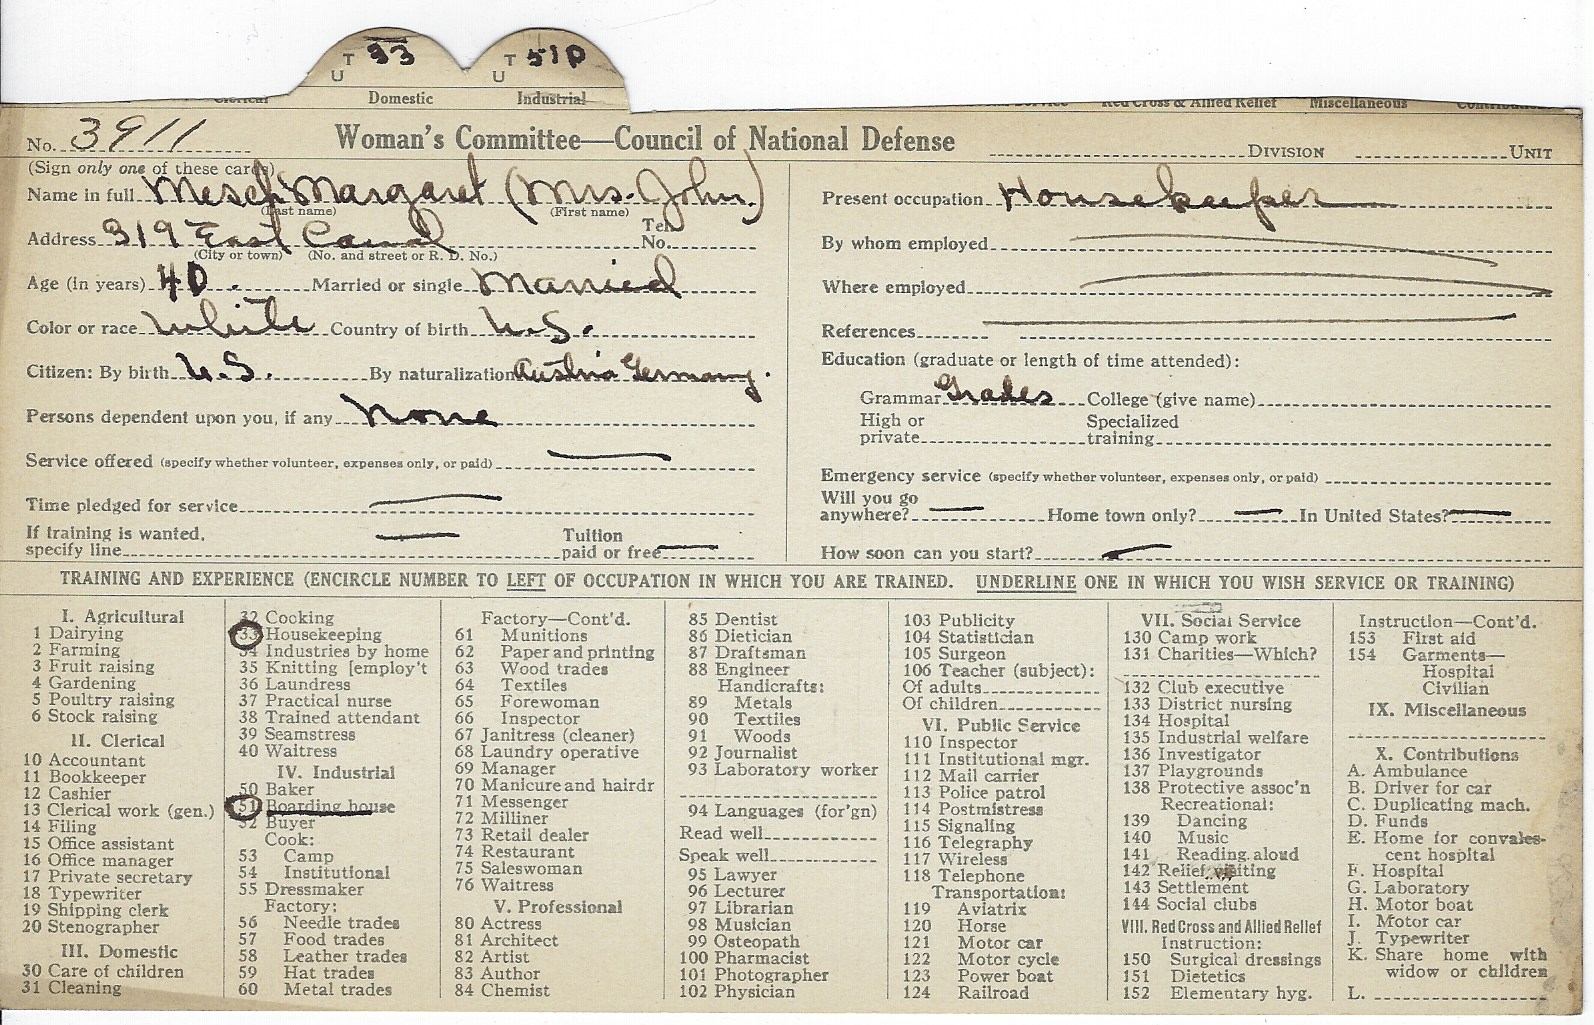 T 33 T 51P
U U
Clerical Domestic Industrial Red Cross & Allied Relief Miscellaneous
No. 3911 Woman's Committee—Council of National Defense DIVISION UNIT
(Sign only one of these cards)
Name in full Mesch Margaret (Mrs. John.)
(Last name) (First name)
Address 319 East Canal Tel. No.
(City or town) (No. and street or R. D. No.)
Age (in years) 40. Married or single Married
Color or race White Country of birth U.S.
Citizen: By birth U.S. By naturalization Austria Germany.
Persons dependent upon you, if any None
Service offered (specify whether volunteer, expenses only, or paid)
Time pledged for service
If training is wanted, Tuition
specify line paid or free
Present occupation Housekeeper
By whom employed
Where employed
References
Education (graduate or length of time attended):
Grammar Grades College (give name)
High or Specialized
private training
Emergency service (specify whether volunteer, expenses only, or paid)
Will you go
anywhere? Home town only? In United States?
How soon can you start?
TRAINING AND EXPERIENCE (ENCIRCLE NUMBER TO LEFT OF OCCUPATION IN WHICH YOU ARE TRAINED. UNDERLINE ONE IN WHICH YOU WISH SERVICE OR TRAINING)
I. Agricultural
1 Dairying
2 Farming
3 Fruit raising
4 Gardening
5 Poultry raising
6 Stock raising
II. Clerical
10 Accountant
11 Bookkeeper
12 Cashier
13 Clerical work (gen.)
14 Filing
15 Office assistant
16 Office manager
17 Private secretary
18 Typewriter
19 Shipping clerk
20 Stenographer
III. Domestic
30 Care of children
31 Cleaning
32 Cooking
33 Housekeeping
34 Industries by home
35 Knitting [employ't
36 Laundress
37 Practical nurse
38 Trained attendant
39 Seamstress
40 Waitress
IV. Industrial
50 Baker
51 Boarding house
52 Buyer
Cook:
53 Camp
54 Institutional
55 Dressmaker
Factory:
56 Needle trades
57 Food trades
58 Leather trades
59 Hat trades
60 Metal trades
Factory—Cont'd.
61 Munitions
62 Paper and printing
63 Wood trades
64 Textiles
65 Forewoman
66 Inspector
67 Janitress (cleaner)
68 Laundry operative
69 Manager
70 Manicure and hairdr
71 Messenger
72 Milliner
73 Retail dealer
74 Restaurant
75 Saleswoman
76 Waitress
V. Professional
80 Actress
81 Architect
82 Artist
83 Author
84 Chemist
85 Dentist
86 Dietician
87 Draftsman
88 Engineer
Handicrafts:
89 Metals
90 Textiles
91 Woods
92 Journalist
93 Laboratory worker
94 Languages (for'gn)
Read well
Speak well
95 Lawyer
96 Lecturer
97 Librarian
98 Musician
99 Osteopath
100 Pharmacist
101 Photographer
102 Physician
103 Publicity
104 Statistician
105 Surgeon
106 Teacher (subject):
Of adults
Of children
VI. Public Service
110 Inspector
111 Institutional mgr.
112 Mail carrier
113 Police patrol
114 Postmistress
115 Signaling
116 Telegraphy
117 Wireless
118 Telephone
Transportation:
119 Aviatrix
120 Horse
121 Motor car
122 Motor cycle
123 Power boat
124 Railroad
VII. Social Service
130 Camp work
131 Charities—Which?
132 Club executive
133 District nursing
134 Hospital
135 Industrial welfare
136 Investigator
137 Playgrounds
138 Protective assoc'n
Recreational:
139 Dancing
140 Music
141 Reading aloud
142 Relief visiting
143 Settlement
144 Social clubs
VIII. Red Cross and Allied Relief
Instruction:
150 Surgical dressings
151 Dietetics
152 Elementary hyg.
Instruction—Cont'd.
153 First aid
154 Garments—
Hospital
Civilian
IX. Miscellaneous
X. Contributions
A. Ambulance
B. Driver for car
C. Duplicating mach.
D. Funds
E. Home for convales-
cent hospital
F. Hospital
G. Laboratory
H. Motor boat
I. Motor car
J. Typewriter
K. Share home with
widow or children
L.